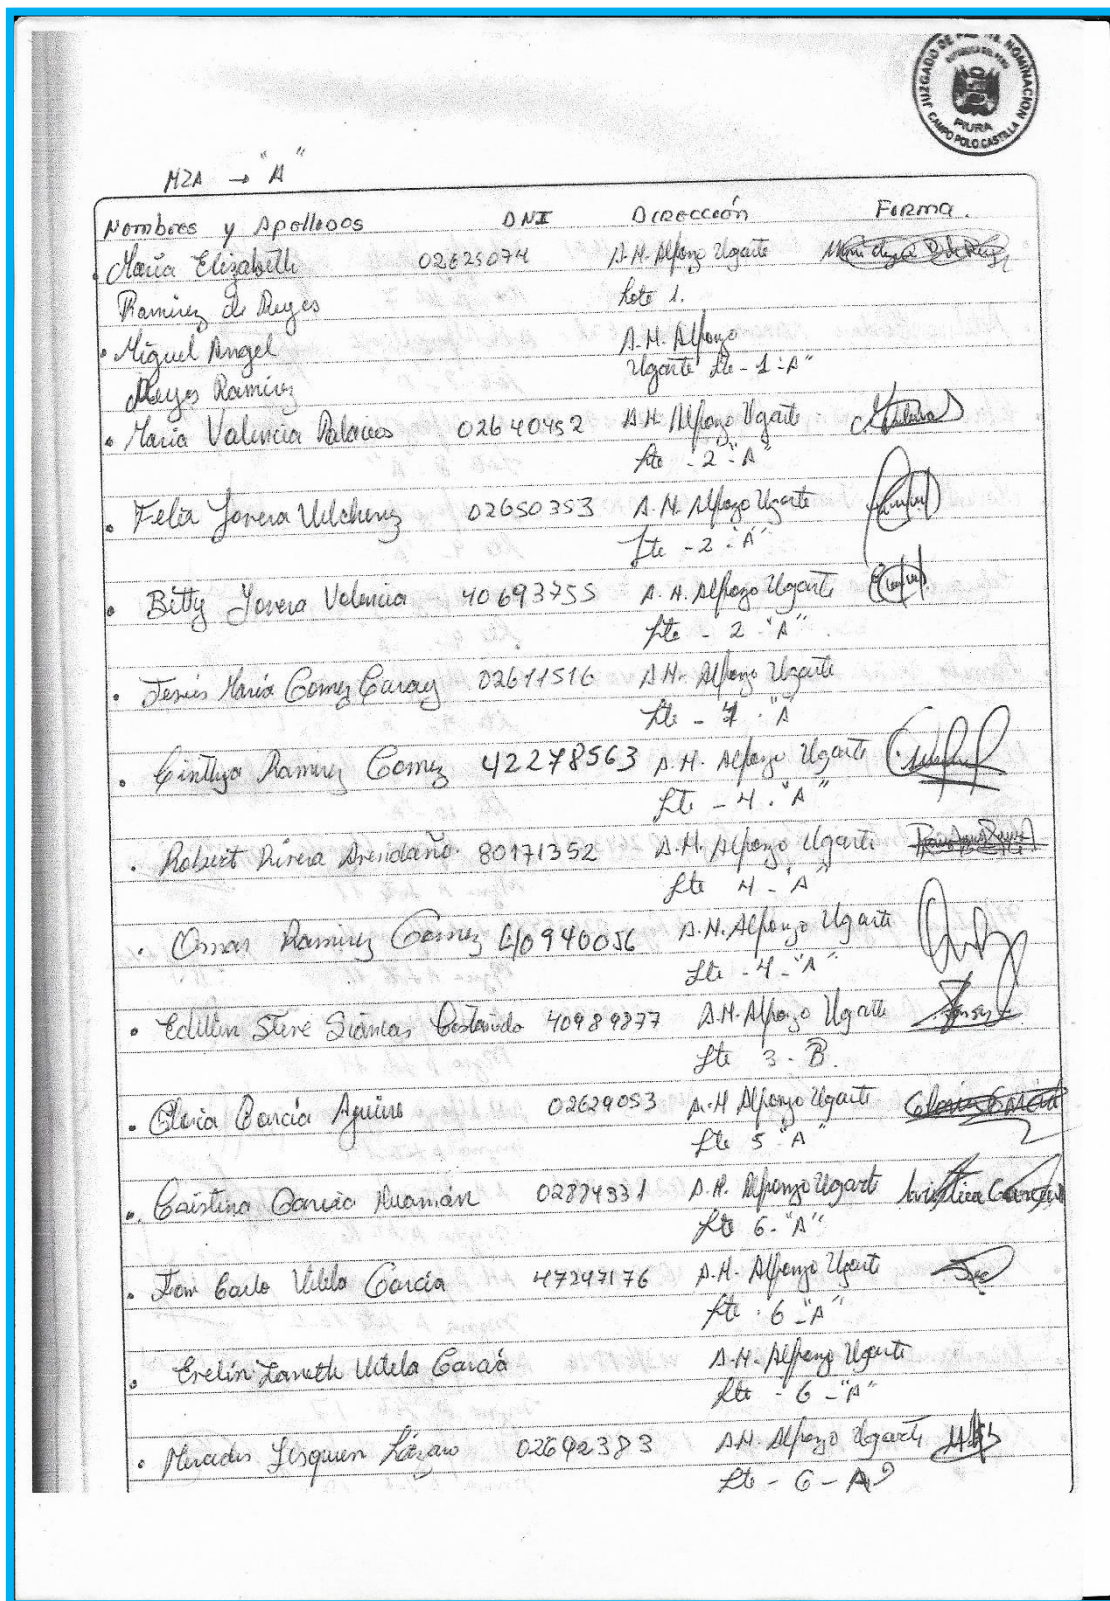 JUZGADO DE PAZ NOMINACION
REPUBLICA DEL PERU
PIURA
CAMPO POLO CASTILLA
MZA → "A"
Nombres y Apellidos DNI Dirección Firma.
María Elizabeth 02625074 A.H. Alfonzo Ugarte
Ramirez de Reyes Lote 1.
Miguel Angel A.H. Alfonzo
Reyes Ramirez Ugarte Lte - 1 - A"
Maria Valencia Palacios 02640452 A.H. Alfonzo Ugarte
Lte - 2 - "A"
Felix Yovera Vilcherez 02650353 A.H. Alfonzo Ugarte
Lte - 2 - "A"
Bitty Yovera Valencia 40693755 A.H. Alfonzo Ugarte
Lte - 2 - "A"
Jesús María Gomez Garay 02611516 A.H. Alfonzo Ugarte
Lte - 4 - "A"
Cinthya Ramirez Gomez 42278563 A.H. Alfonzo Ugarte
Lte - 4 - "A"
Robert Rivera Avendaño 80171352 A.H. Alfonzo Ugarte
Lte 4 - "A"
Omar Ramirez Gomez 40940056 A.H. Alfonzo Ugarte
Lte - 4 - "A"
Steve 40989877 A.H. Alfonzo Ugarte
Lte 3 - B.
Gloria García Aguirre 02629053 A.H Alfonzo Ugarte Gloria García
Lte 5 "A"
Cristina García Huamán 02874931 A.H. Alfonzo Ugarte Cristina García
Lte 6 - "A"
Jean Carlo Vilela García 47247176 A.H. Alfonzo Ugarte
Lte - 6 - "A"
Evelin Janeth Vilela García A.H. Alfonzo Ugarte
Lte - 6 - "A"
Mercedes Yesquen Lázaro 02692383 A.H. Alfonzo Ugarte
Lte - 6 - A"